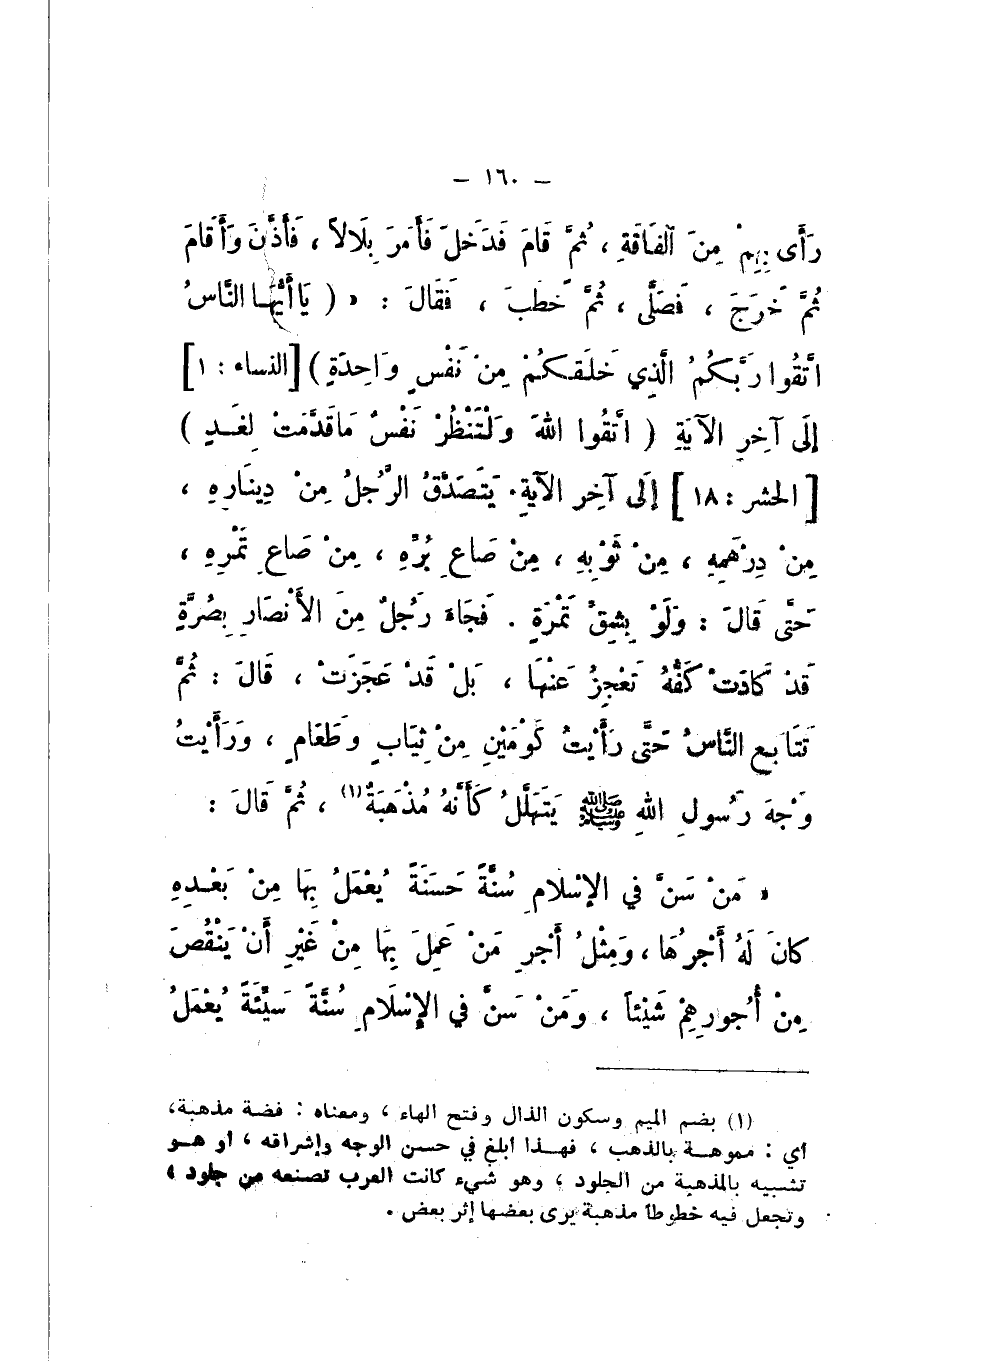 – ١٦٠ –
رَأَى بِهِمْ مِنَ الْفَاقَةِ ، ثُمَّ قَامَ فَدَخَلَ فَأَمَرَ بِلَالاً ، فَأَذَّنَ وَأَقَامَ
ثُمَّ خَرَجَ ، فَصَلَّى ، ثُمَّ خَطَبَ ، فَقَالَ : « ( يَا أَيُّهَا النَّاسُ
اتَّقُوا رَبَّكُمُ الَّذِي خَلَقَكُمْ مِنْ نَفْسٍ وَاحِدَةٍ ) [النساء : ١]
إِلَى آخِرِ الآيَةِ ( اتَّقُوا اللهَ وَلْتَنْظُرْ نَفْسٌ مَا قَدَّمَتْ لِغَدٍ )
[ الحشر : ١٨ ] إِلَى آخِرِ الآيَةِ. يَتَصَدَّقُ الرَّجُلُ مِنْ دِينَارِهِ ،
مِنْ دِرْهَمِهِ ، مِنْ ثَوْبِهِ ، مِنْ صَاعِ بُرِّهِ ، مِنْ صَاعِ تَمْرِهِ ،
حَتَّى قَالَ : وَلَوْ بِشِقِّ تَمْرَةٍ . فَجَاءَ رَجُلٌ مِنَ الأَنْصَارِ بِصُرَّةٍ
قَدْ كَادَتْ كَفُّهُ تَعْجِزُ عَنْهَا ، بَلْ قَدْ عَجَزَتْ ، قَالَ : ثُمَّ
تَتَابَع النَّاسُ حَتَّى رَأَيْتُ كَوْمَيْنِ مِنْ ثِيَابٍ وَطَعَامٍ ، وَرَأَيْتُ
وَجْهَ رَسُولِ اللهِ ﷺ يَتَهَلَّلُ كَأَنَّهُ مُذْهَبَةٌ (١) ، ثُمَّ قَالَ :
« مَنْ سَنَّ فِي الإِسْلَامِ سُنَّةً حَسَنَةً يُعْمَلُ بِهَا مِنْ بَعْدِهِ
كَانَ لَهُ أَجْرُهَا ، وَمِثْلُ أَجْرِ مَنْ عَمِلَ بِهَا مِنْ غَيْرِ أَنْ يَنْقُصَ
مِنْ أُجُورِهِمْ شَيْئاً ، وَمَنْ سَنَّ فِي الإِسْلَامِ سُنَّةً سَيِّئَةً يُعْمَلُ
(١) بضم الميم وسكون الذال وفتح الهاء ، ومعناه : فضة مذهبة،
أي : مموهة بالذهب ، فهذا أبلغ في حسن الوجه وإشراقه ، أو هو
تشبيه بالمذهبة من الجلود ، وهو شيء كانت العرب تصنعه من جلود ،
وتجعل فيه خطوطاً مذهبة يرى بعضها إثر بعض .